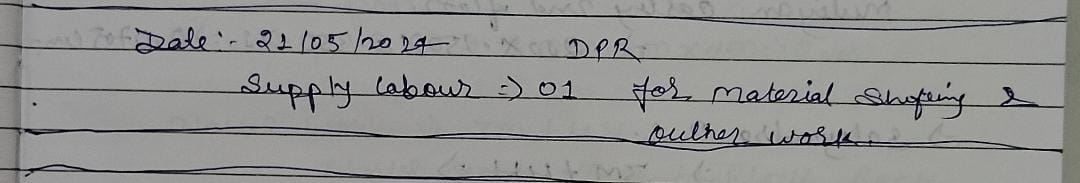 Date :- 21/05/2024 DPR
Supply labour => 01 for material Shofting &
outher work.